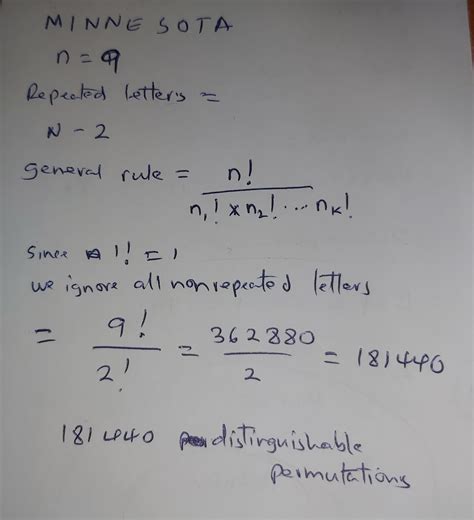 MINNESOTA
n = 9
Repeated letters =
N - 2
general rule = n! / n₁! × n₂! ... nₖ!
Since 1! = 1
we ignore all nonrepeated letters
= 9! / 2! = 362880 / 2 = 181440
181440 distinguishable
permutations